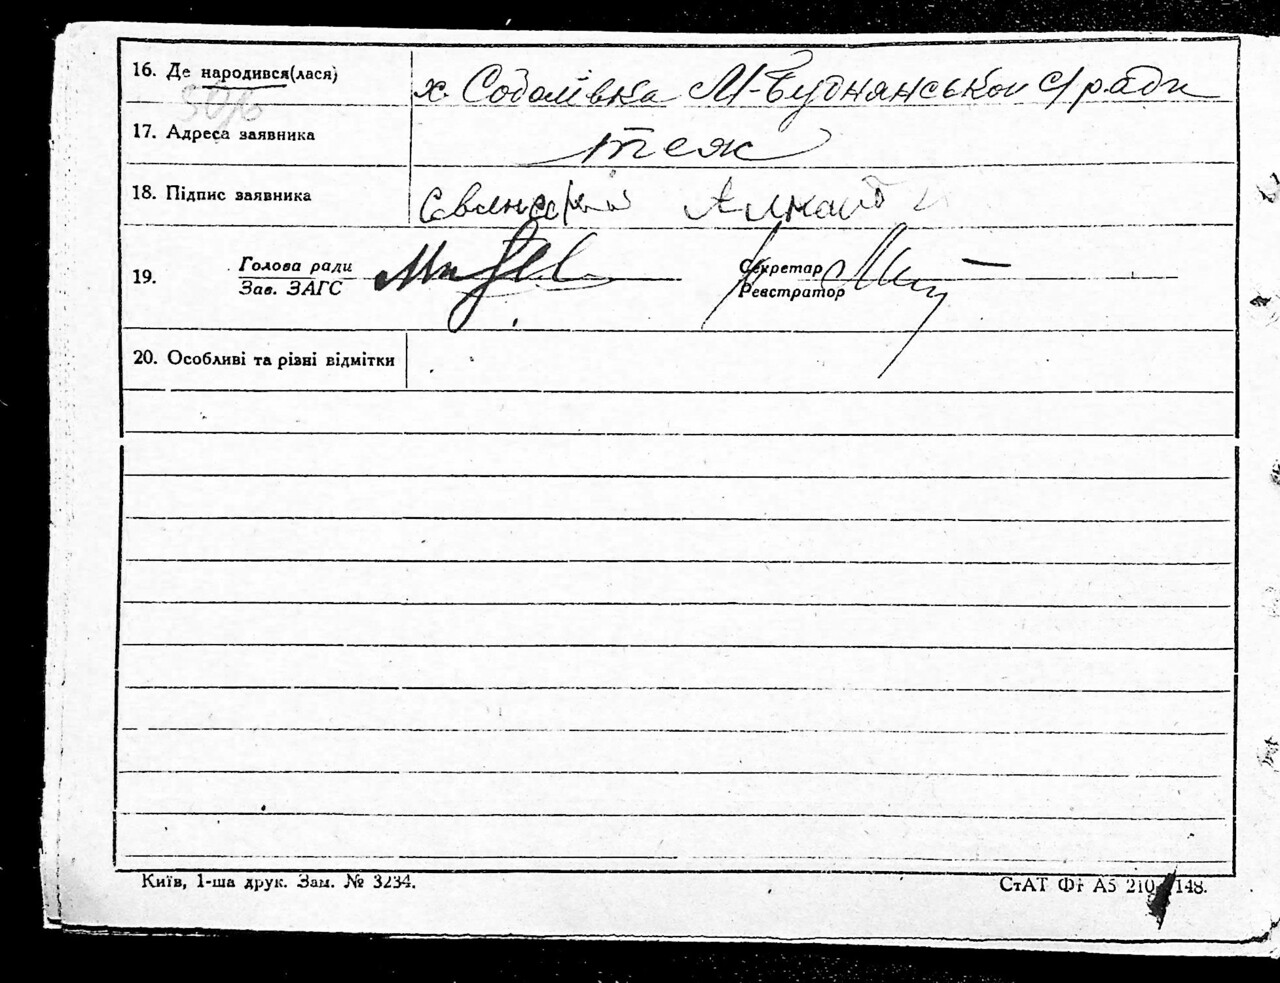 16. Де народився(лася) х. Содомівка М-Буднянськои с/ради
50/6
17. Адреса заявника теж
18. Підпис заявника
19. Голова ради Секретар
Зав. ЗАГС Реєстратор
20. Особливі та різні відмітки
Київ, 1-ша друк. Зам. № 3234. СтАТ Фі А5 210 148.